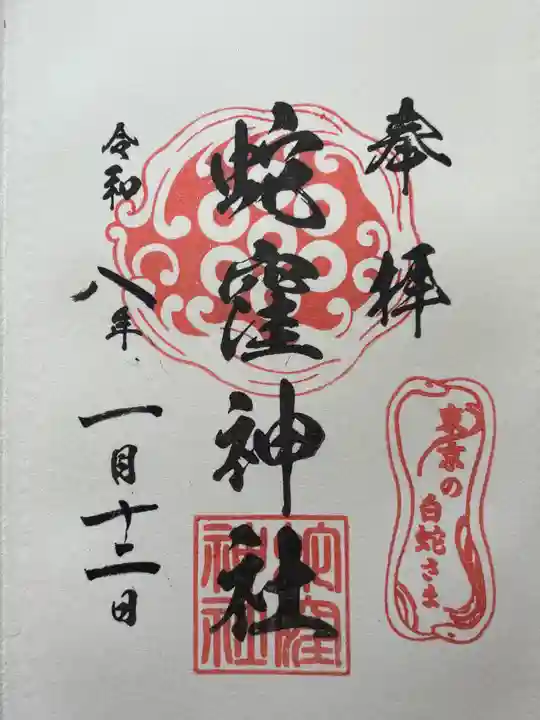 奉拝
東京の
白蛇さま
蛇窪神社
蛇窪
神社
令和八年
一月十二日